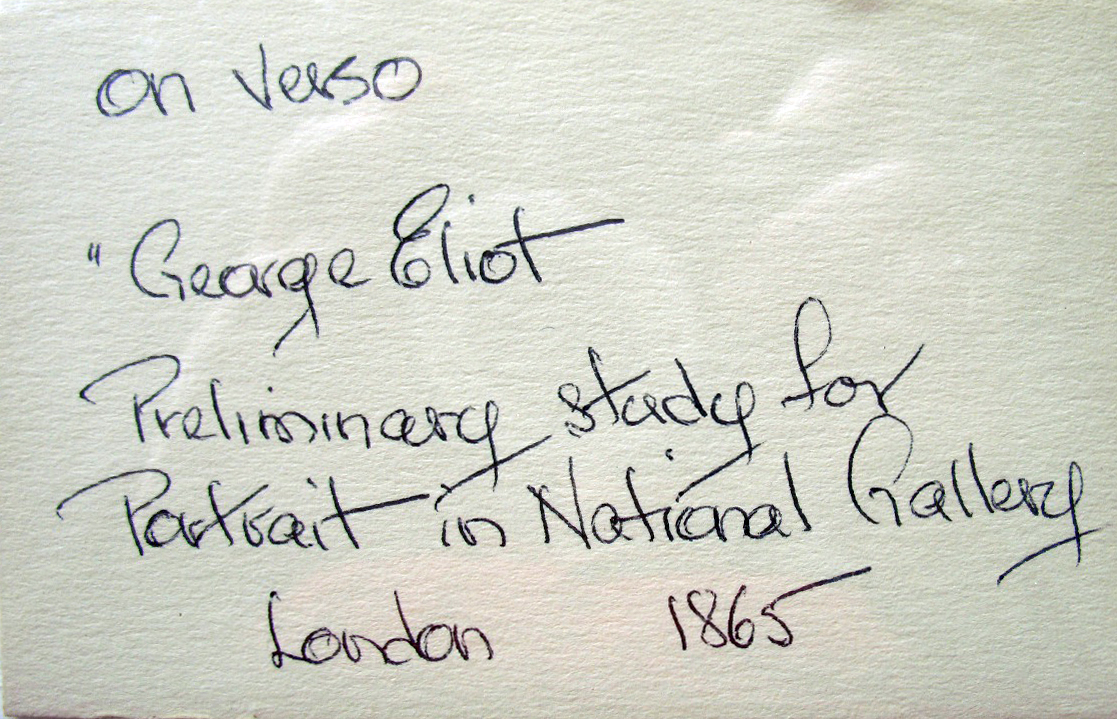 on verso
" George Eliot
Preliminary study for
Portrait in National Gallery
London 1865